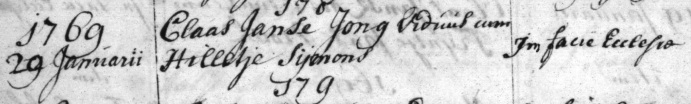 1769 Claas Janse Jong Viduus cum
29 Januarii Hilletje Sijmons Jn facie Ecclesiæ
179